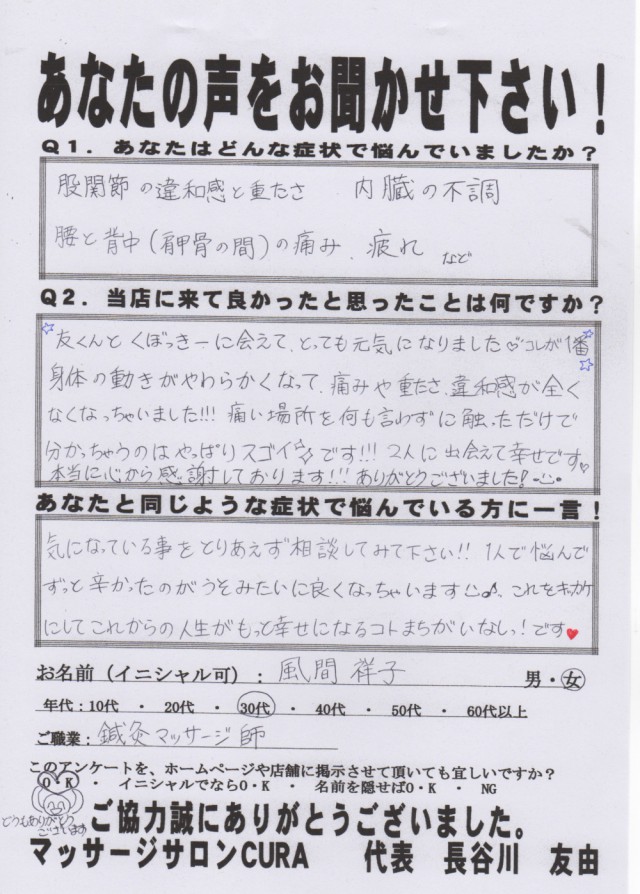 あなたの声をお聞かせ下さい！
Q1．あなたはどんな症状で悩んでいましたか？
股関節の違和感と重たさ　内臓の不調
腰と背中（肩甲骨の間）の痛み、疲れ　など
Q2．当店に来て良かったと思ったことは何ですか？
友くんとくぼっきーに会えて、とっても元気になりました♡コレが1番
身体の動きがやわらかくなって、痛みや重たさ、違和感が全く
なくなっちゃいました!!! 痛い場所を何も言わずに触っただけで
分かっちゃうのはやっぱりスゴイです!!! 2人に出会えて幸せです♡
本当に心から感謝しております!!! ありがとうございました!
あなたと同じような症状で悩んでいる方に一言！
気になっている事をとりあえず相談してみて下さい!! 1人で悩んで
ずっと辛かったのがうそみたいに良くなっちゃいます♪、これをキッカケ
にしてこれからの人生がもっと幸せになるコトまちがいなしっ！です♥
お名前（イニシャル可）：風間 祥子　男・女
年代：10代　・　20代　・　30代　・　40代　・　50代　・　60代以上
ご職業：鍼灸マッサージ師
このアンケートを、ホームページや店舗に掲示させて頂いても宜しいですか？
O・K　・　イニシャルでならO・K　・　名前を隠せばO・K　・　NG
どうもありがとう
ございます
ご協力誠にありがとうございました。
マッサージサロンCURA　代表　長谷川　友由